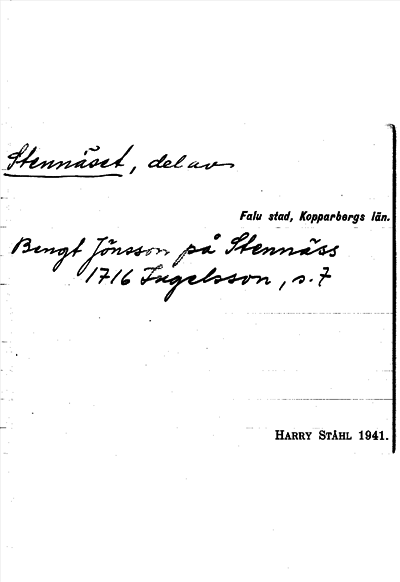 Stennäset, del av
Falu stad, Kopparbergs län.
Bengt Jönsson på Stennäss
1716 Ingelsson, s. 7
HARRY STÅHL 1941.